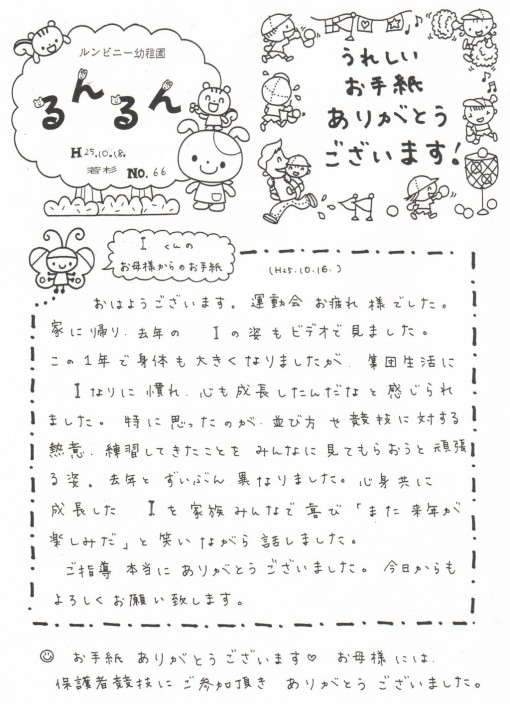 ルンビニー幼稚園
るんるん
H25.10.18.
若杉 No.66
うれしい
お手紙
ありがとう
ございます!
I くんの
お母様からのお手紙
(H25.10.16.)
おはようございます。運動会 お疲れ様でした。
家に帰り、去年の Iの姿もビデオで見ました。
この1年で身体も大きくなりましたが、集団生活に
Iなりに慣れ、心も成長したんだなと感じられ
ました。特に思ったのが、並び方や競技に対する
熱意、練習してきたことをみんなに見てもらおうと頑張
る姿。去年とずいぶん異なりました。心身共に
成長した Iを家族みんなで喜び「また来年が
楽しみだ」と笑いながら話しました。
ご指導 本当にありがとうございました。今日からも
よろしくお願い致します。
☺ お手紙 ありがとうございます♡ お母様には、
保護者競技にご参加頂き ありがとうございました。